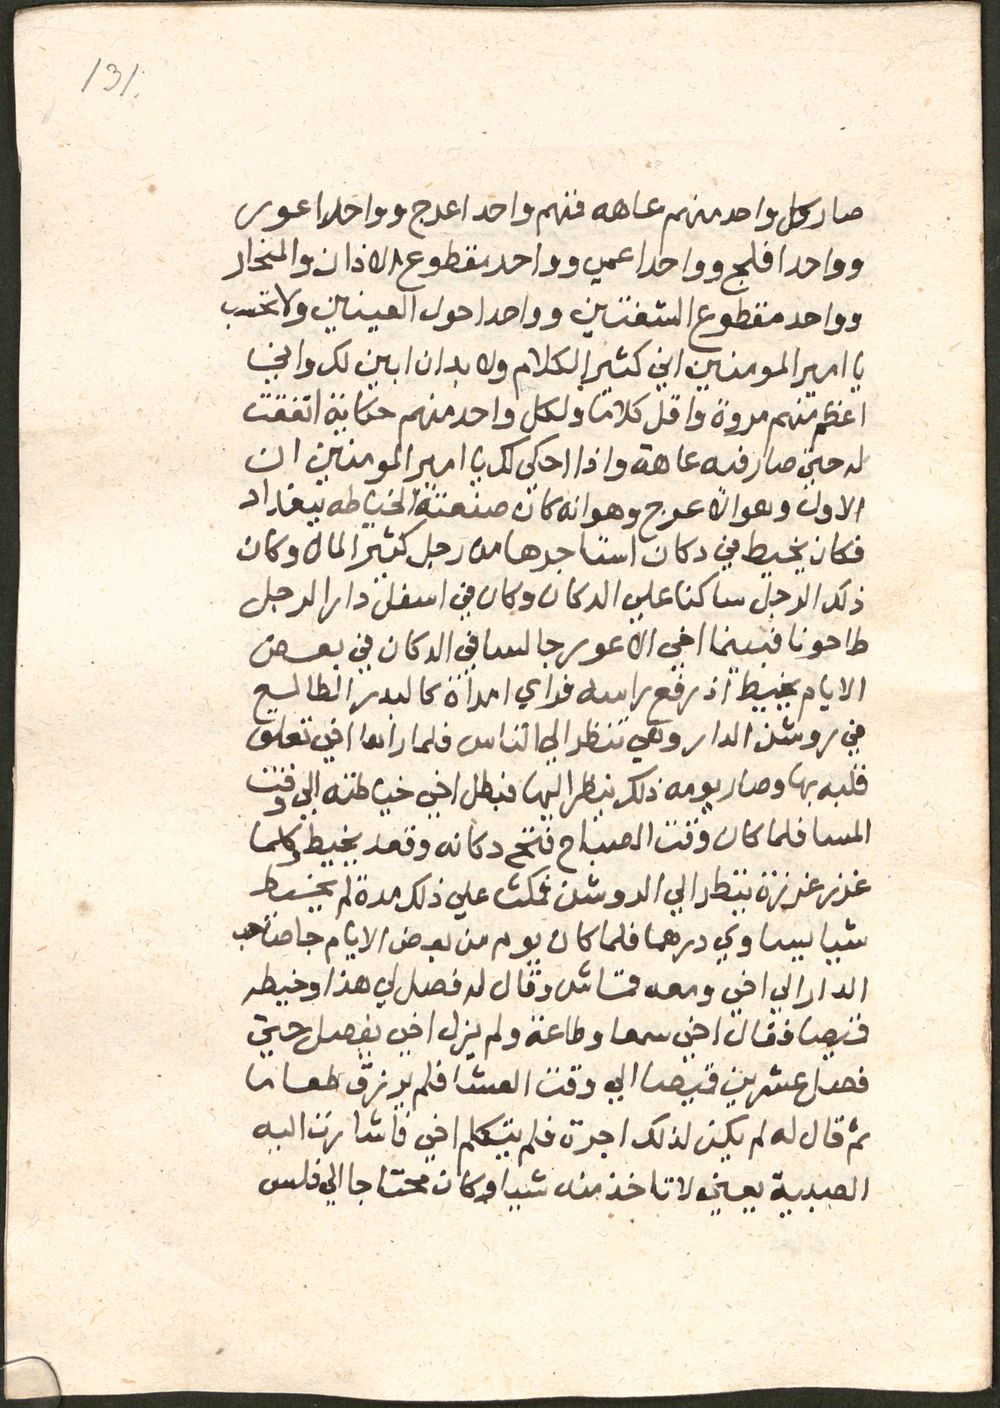 131.
صار كل واحد منهم عاهه فمنهم واحد اعرج وواحد اعور
وواحد افلج وواحد اعمي وواحد مقطوع الاذان والمنخار
وواحد مقطوع الشفتين وواحد احول العينين ولا تحسب
يا امير المومنين اني كثير الكلام ولا بد ان ابين لك واني
اعظم منهم مروة واقل كلاما ولكل واحد منهم حكاية اتفقت
له حتي صار فيه عاهة واذا احكي لك يا امير المومنين ان
الاول وهو الاعرج وهو انه كان صنعته الخياطه ببغداد
فكان يخيط في دكان استاجرها من رجل كثير المال وكان
ذلك الرجل ساكنا علي الدكان وكان في اسفل دار الرجل
طاحونا فبينما اخي الاعور جالسا في الدكان في بعض
الايام يخيط اذ رفع راسه فراي امراة كالبدر الطالع
في روشن الدار وهي تنظر الي الناس فلما راها اخي تعلق
قلبه بها وصار يومه ذلك ينظر اليها فبطل اخي خياطته الي وقت
المسا فلما كان وقت الصباح فتح دكانه وقعد يخيط وكلما
غرز غرزة ينظر الي الروشن فمكث علي ذلك مدة لم يخيط
شيا يساوي درهما فلما كان يوم من بعض الايام جا صاحب
الدار الي اخي ومعه قماش وقال له فصل لي هذا وخيطه
قمصا فقال اخي سمعا وطاعة ولم يزل اخي يفصل حتي
فصل عشرين قميصا الي وقت العشا فلم يزق طعاما
ثم قال له لم يكن لذلك اجرة فلم يتكلم اخي فاشارت اليه
الصبية بعيني لا تاخذ منه شيا وكان محتاجا الي فلس